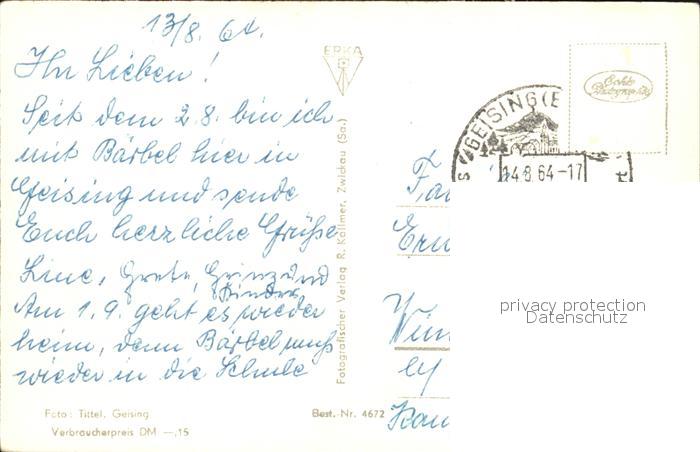 13/8. 64.
Ihr Lieben!
Seit dem 2.8. bin ich
mit Bärbel hier in
Geising und sende
Euch herzliche Grüße
Line, Grete, Heinz und
Kinder
Am 1.9. geht es wieder
heim, denn Bärbel muß
wieder in die Schule
Foto: Tittel, Geising
Verbraucherpreis DM —,15
Best.-Nr. 4672
ERKA
Fotografischer Verlag R. Kallmer, Zwickau (Sa.)
Echte
Photographie
GEISING (E
14.8.64-17
privacy protection
Datenschutz